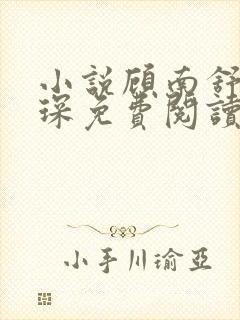 小說顧南舒
琛免費閱讀
小手川瑜亞